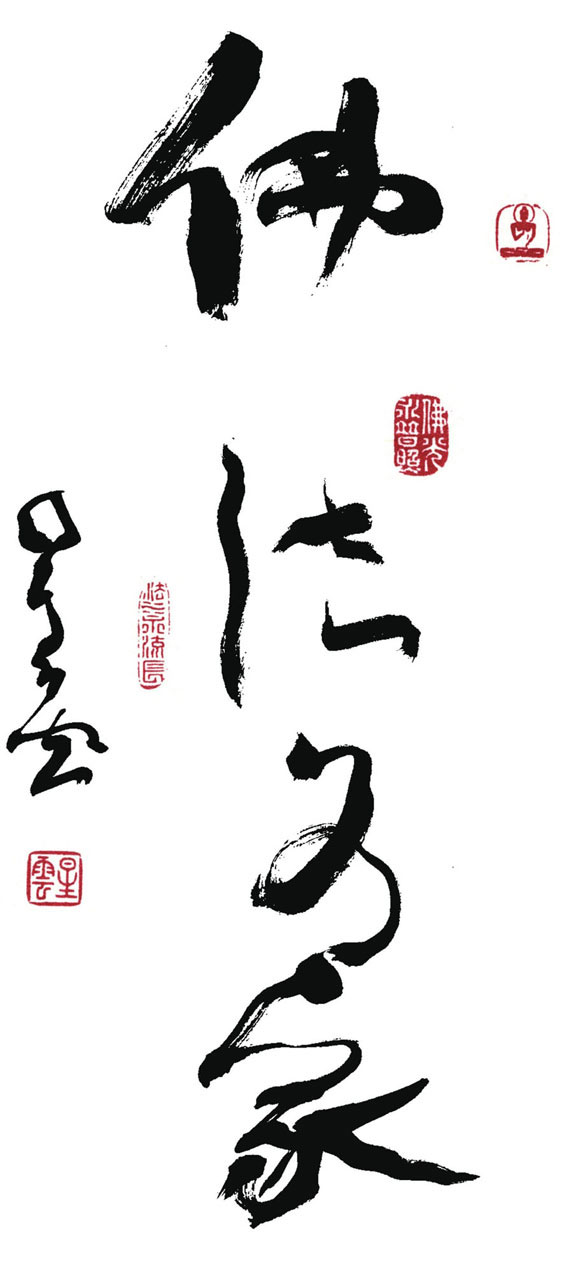 佛法為家
佛光永普照
法水永流長
星雲
星雲